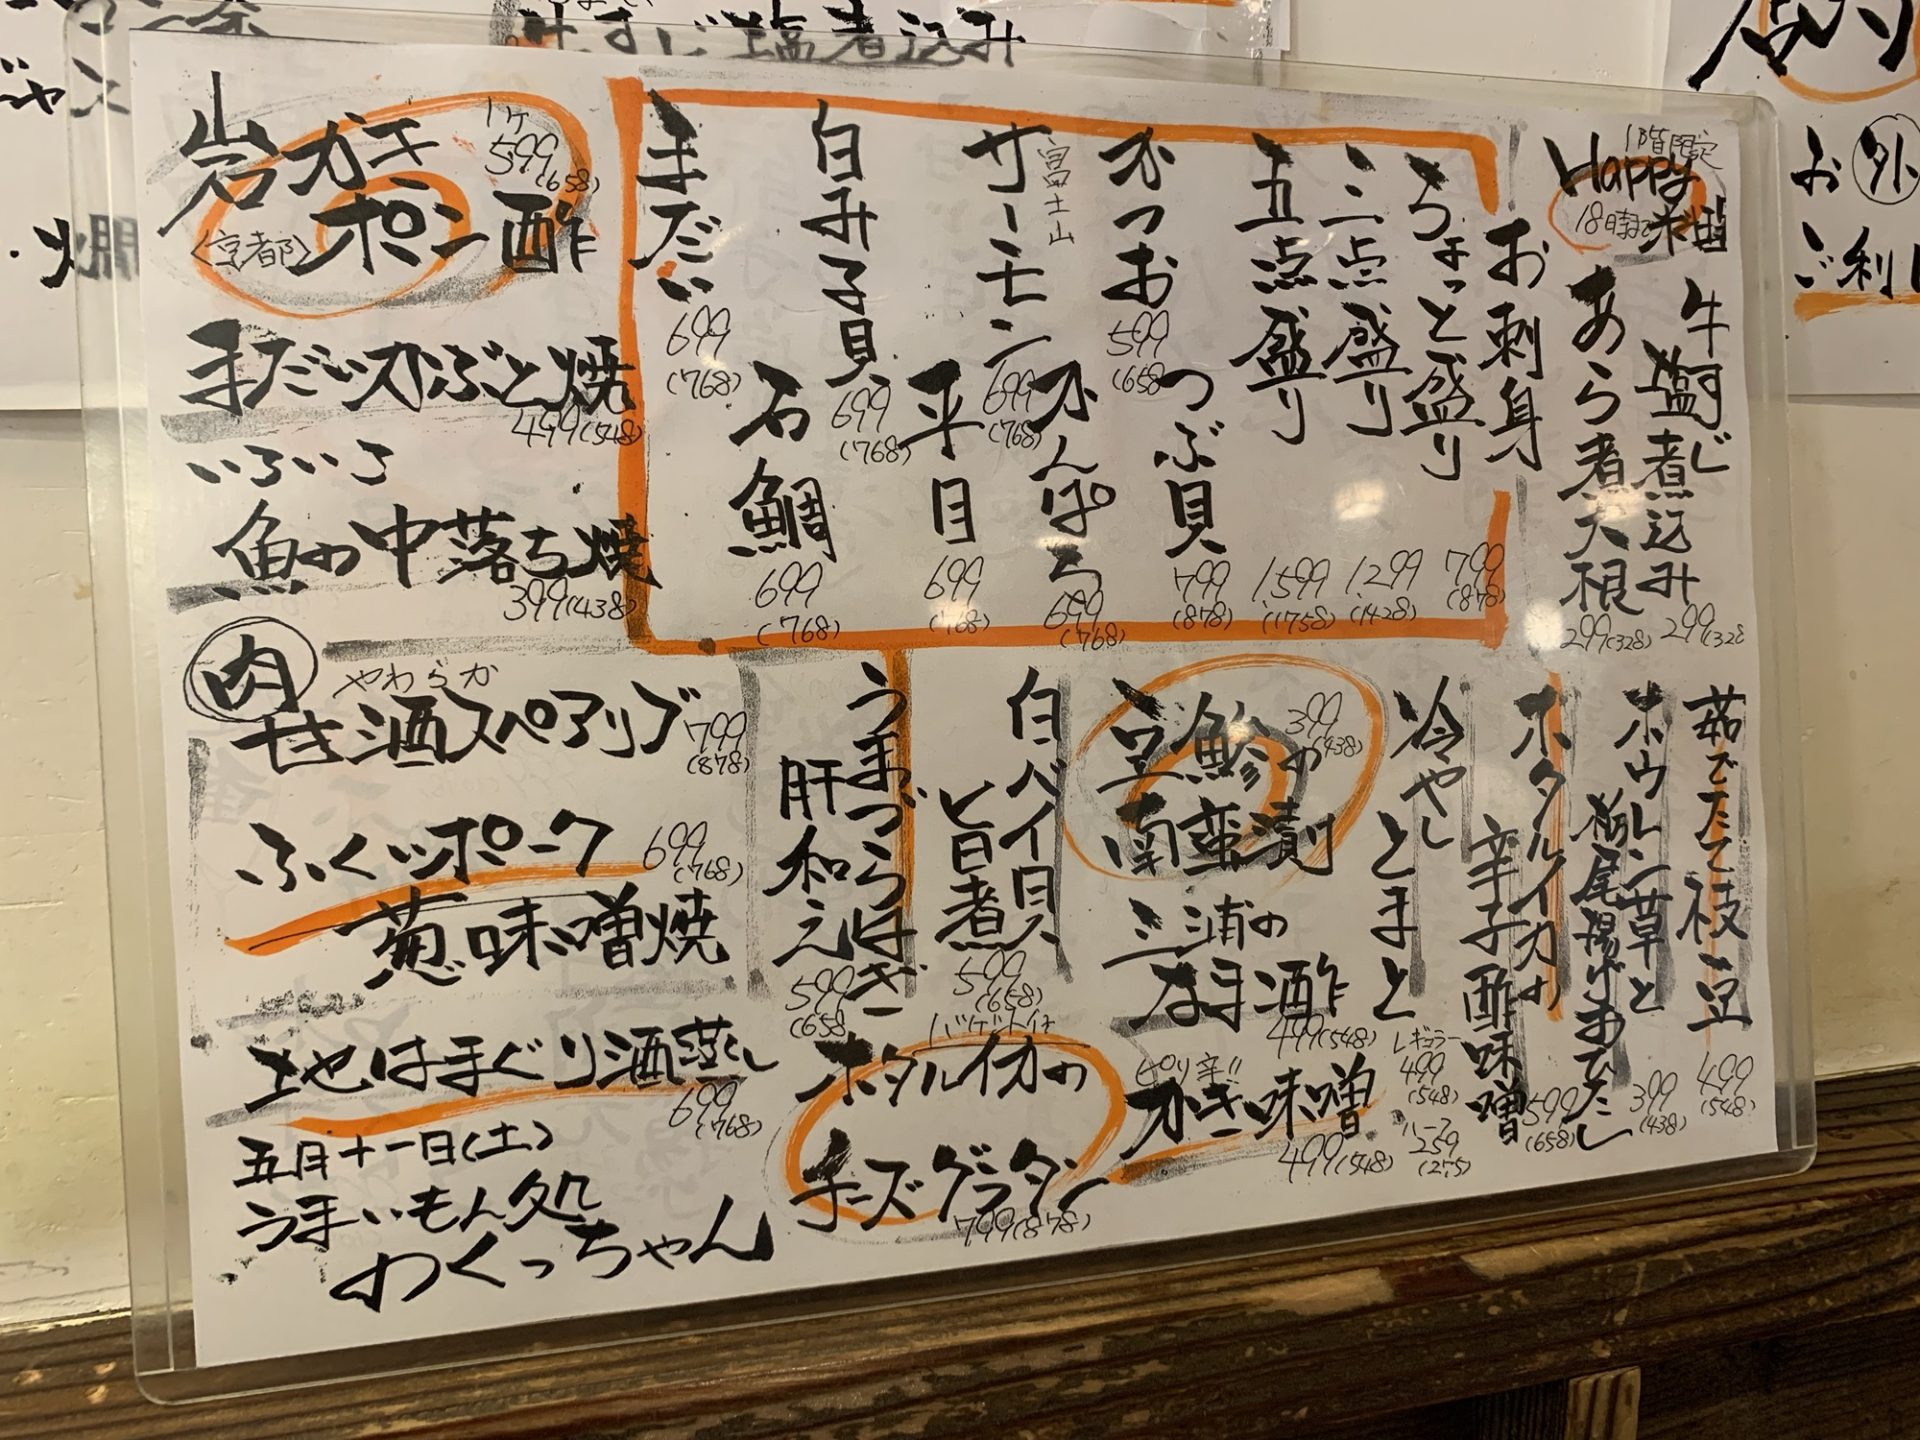 牛すじ塩煮込み
1階限定
Happy
18時まで
牛すじ塩煮込み 299(328
あら煮大根 299(328)
お刺身
ちょっと盛り 799(878)
三点盛り 1,299(1428)
五点盛り 1,599(1758)
かつお 599(658
つぶ貝 799(878)
富士山
サーモン 699(768)
かんぱち 699(768)
白み子貝 699(768)
平目 699(768)
まだい 699(768)
石鯛 699(768)
岩ガキ
ポン酢
1ケ
599(658)
〈京都〉
まだいかぶと焼
499(548)
いろいろ
魚の中落ち焼
399(438)
茹でたて枝豆 499(548)
ホウレン草と
栃尾揚げおひたし 399(438)
ホタルイカの
辛子酢味噌 599(658)
冷やし
とまと
レギュラー
499(548)
ハーフ
259(275)
豆鯵の
南蛮漬
399(438)
三浦の
なまこ酢
499(548)
ピリ辛!!
かき味噌
499(548)
白バイ貝
旨煮
599(658)
うまづらはぎ
肝和え
599(658
バゲット付
ホタルイカの
チーズグラタン
799(878)
肉
やわらか
甘酒スペアリブ
799(878)
ふくッポーク
699(768)
葱味噌焼
地はまぐり酒蒸し
699(768)
五月十一日(土)
うまいもん処
わくっちゃん
お外
ご利